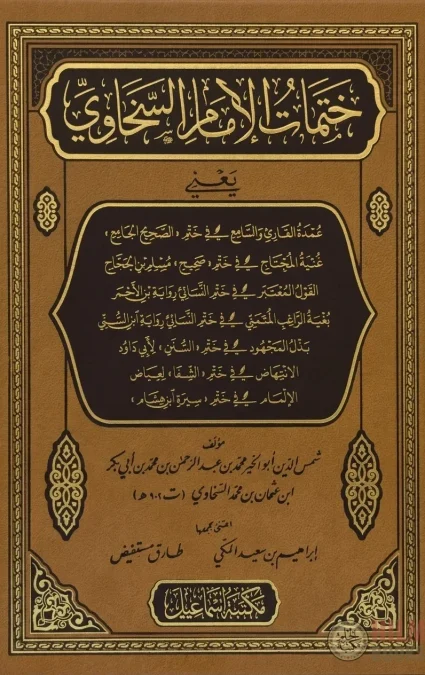 ختمات الإمام السخاوي
يعني
عمدة القاري والسامع في ختم «الصحيح الجامع»
غنية المحتاج في ختم «صحيح» مسلم بن الحجاج
القول المعتبر في ختم النسائي رواية ابن الأحمر
بغية الراغب المتمني في ختم النسائي رواية ابن السني
بذل المجهود في ختم «السنن» لأبي داود
الانتهاض في ختم «الشفا» لعياض
الإلمام في ختم «سيرة ابن هشام»
مؤلف
شمس الدين أبو الخير محمد بن عبد الرحمن بن محمد بن أبي بكر
ابن عثمان بن محمد السخاوي (ت ٩٠٢ هـ)
اعتنى بجمعها
إبراهيم بن سعيد المكي طارق مستفيض
مكتبة إسماعيل